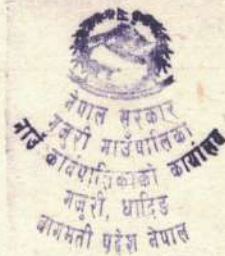 नेपाल सरकार
गजुरी गाउँपालिका
गाउँ कार्यपालिकाको कार्यालय
गजुरी, धादिङ
बागमती प्रदेश नेपाल